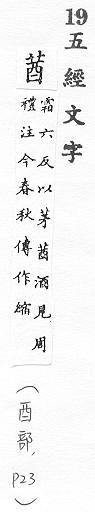 19五經文字
莤
霜六反以茅莤酒見周
禮注今春秋傳作縮
(酉部, P23)